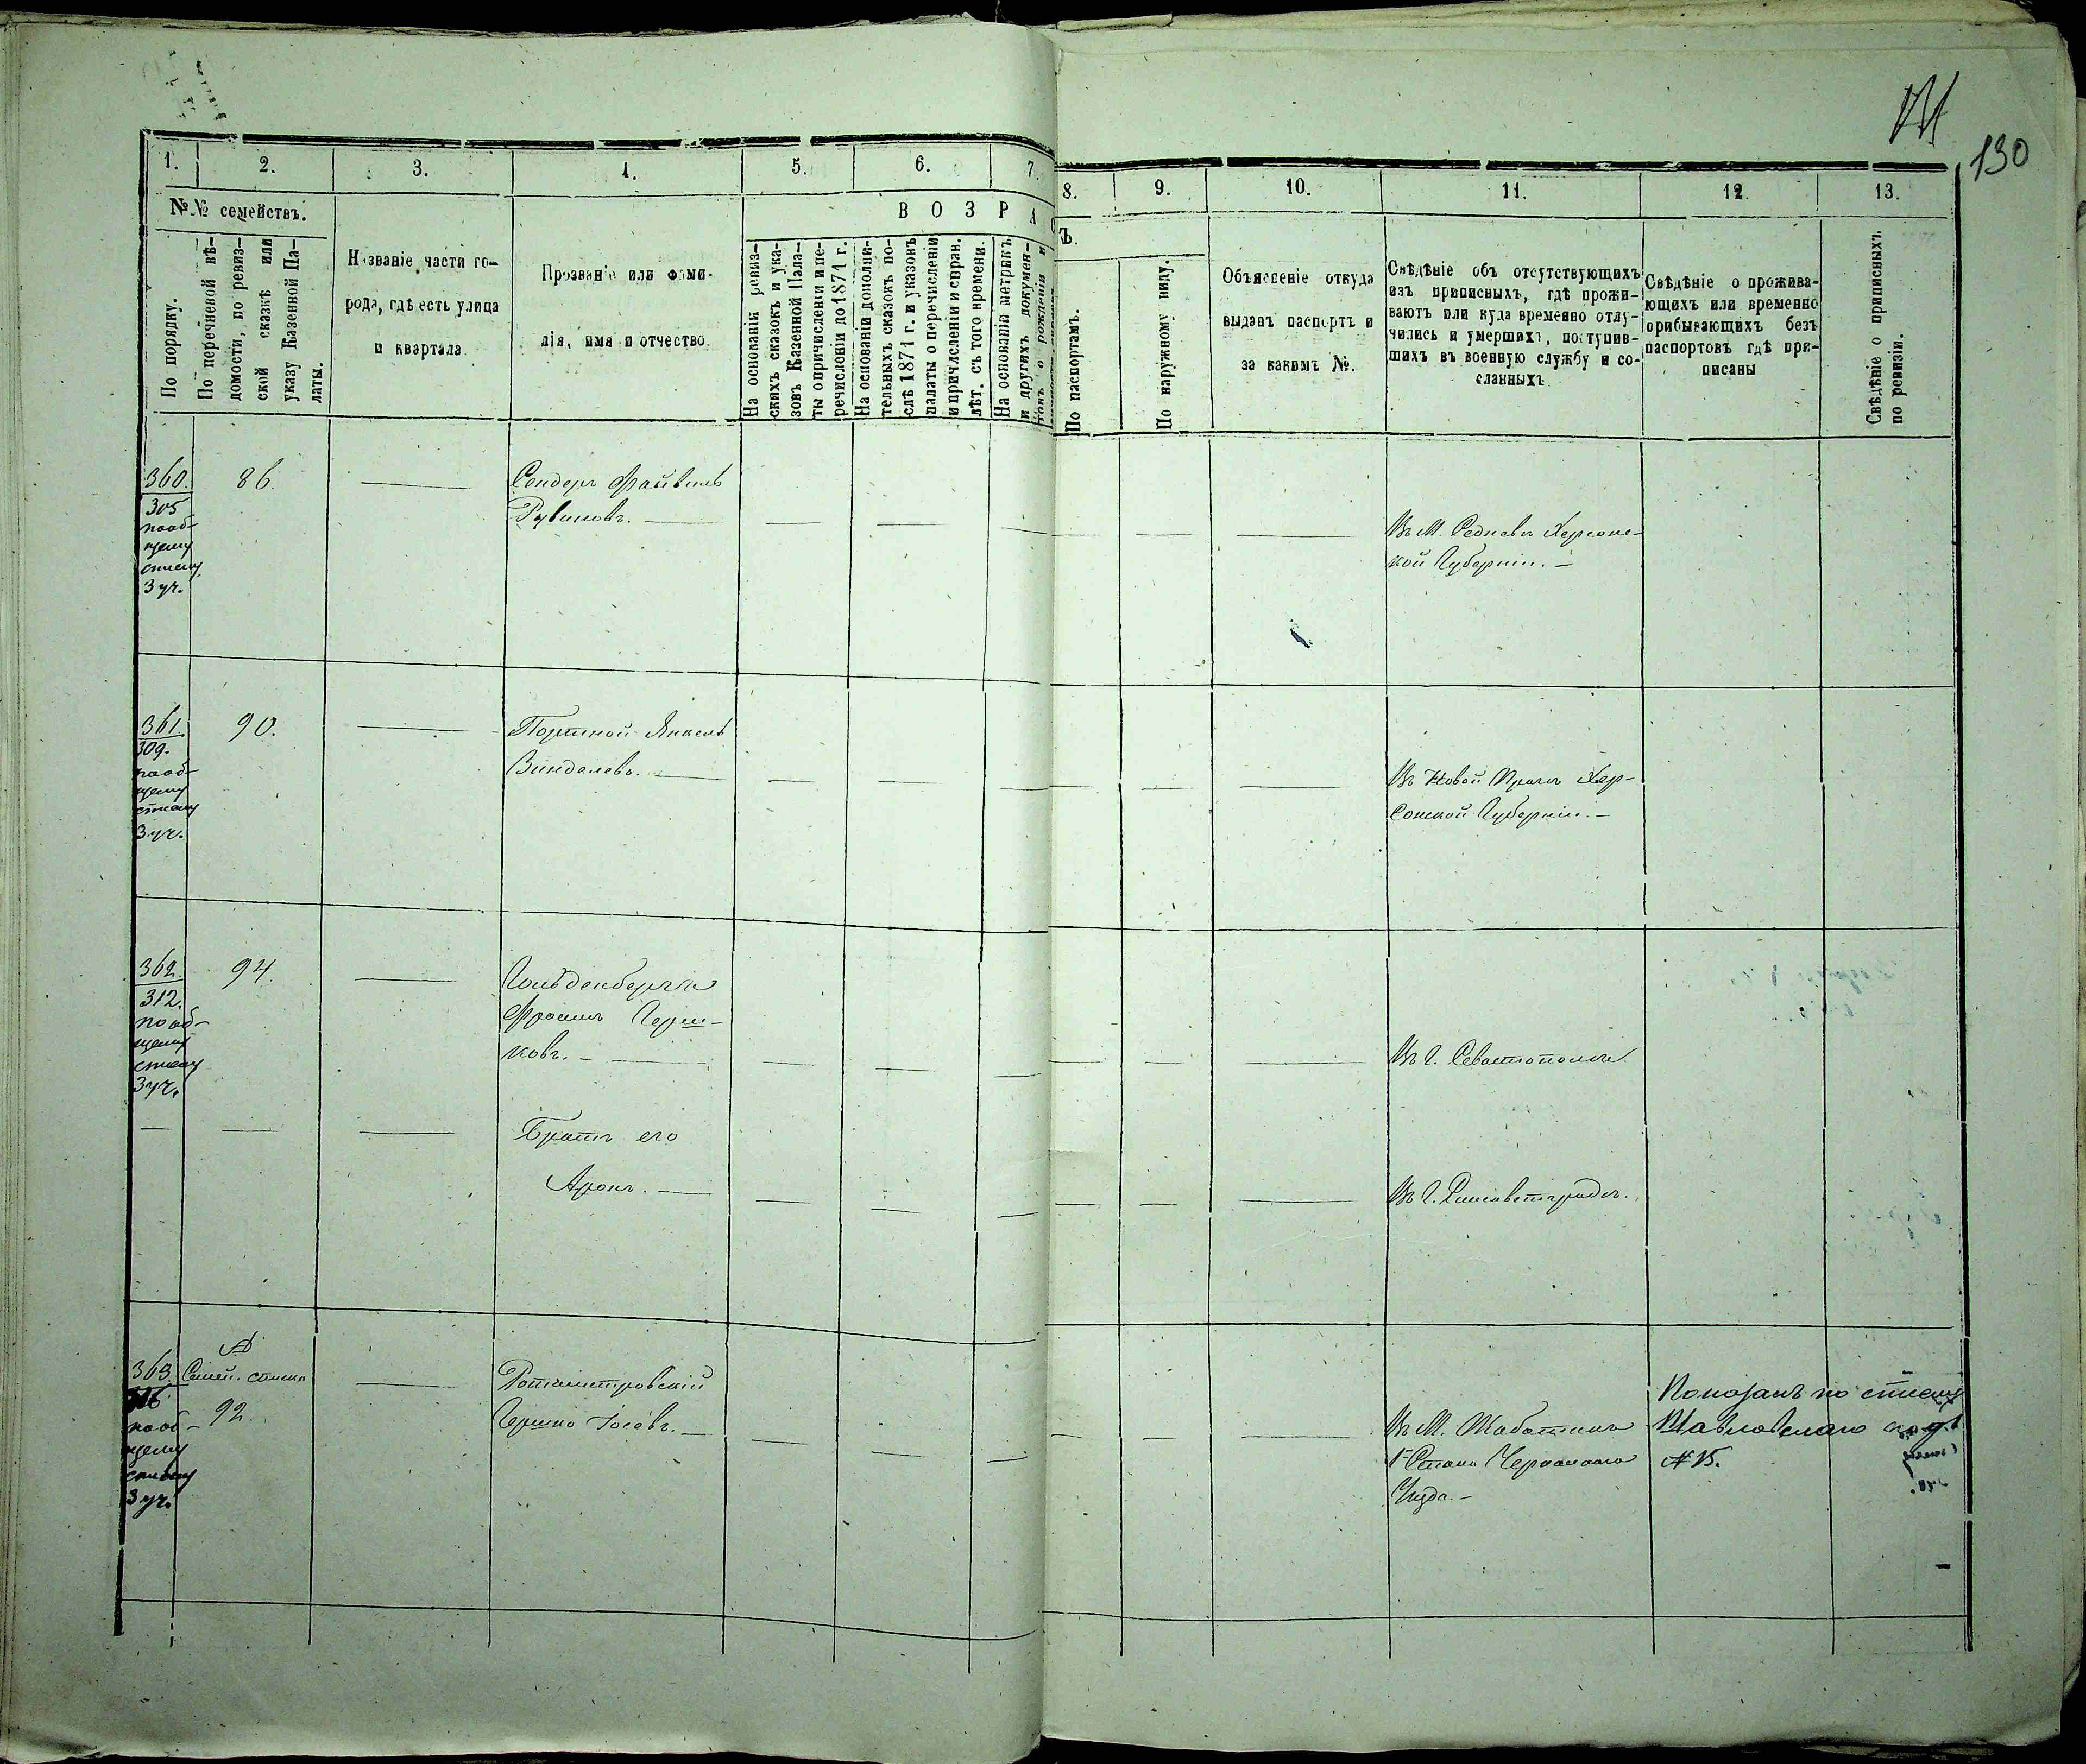 130
1. 2. 3. 4. 5. 6. 7. 8. 9. 10. 11. 12. 13.
№№ семействъ.
По порядку.
По перечневой вѣ-
домости, по ревиз-
ской сказкѣ или
указу Казенной Па-
латы.
Названіе части го-
рода, гдѣ есть улица
и квартала.
Прозваніе или фами-
лія, имя и отчество.
ВОЗРАСТЪ.
На основаніи ревиз-
скихъ сказокъ и ука-
зовъ Казенной Пала-
ты о причисленіи и пе-
речисленіи до 1871 г.
На основаніи дополни-
тельныхъ сказокъ по-
слѣ 1871 г. и указовъ
палаты о перечисленіи
и причисленіи и спран.
лѣт. съ того времени.
На основаніи метрикъ
и другихъ докумен-
товъ о рожденіи и
По паспортамъ.
По наружному виду.
Объясненіе откуда
выданъ паспортъ и
за какимъ №.
Свѣдѣніе объ отсутствующихъ
изъ приписныхъ, гдѣ прожи-
ваютъ или куда временно отлу-
чились и умершихъ, поступив-
шихъ въ военную службу и со-
сланныхъ.
Свѣдѣніе о прожива-
ющихъ или временно
прибывающихъ безъ
паспортовъ гдѣ при-
писаны
Свѣдѣніе о приписныхъ
по ревизіи.
360.
305
по об-
щему
списку
3 уч.
86.
Сендеръ Файвель
Рувиновъ.
Въ М. Херсонс-
кой Губерніи.
361.
309.
по об-
щему
списку
3 уч.
90.
Портной Янкель
Въ Новой Прагѣ Хер-
сонской Губерніи.
362.
312.
по об-
щему
списку
3 уч.
94.
Гольденбергъ
Фроимъ Герш-
ковъ.
Въ Г. Севастополѣ
Братъ его
Аронъ.
Въ Г. Елисаветградѣ.
363.
по об-
щему
списку
3 уч.
№
Семей. списка
92.
Ротмистровскій
Гершко Іосевъ.
Въ М. Жаботинѣ
1 Стана Черкасскаго
Уѣзда.
Показанъ по списку
Павловскаго под
№ 15.